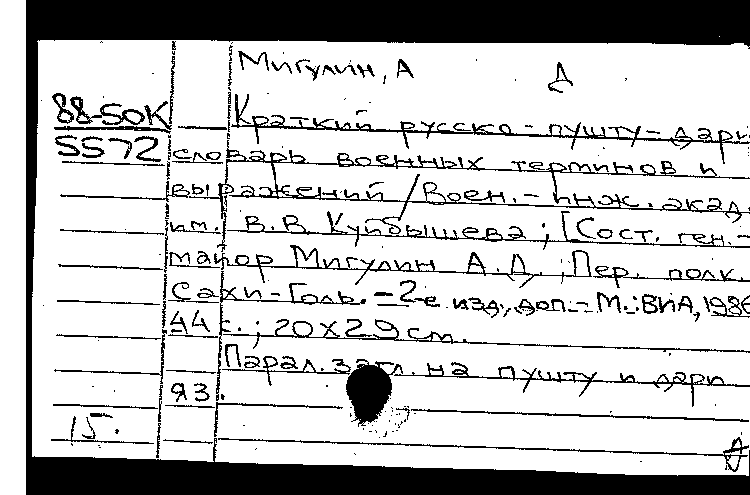 Мигулин, А Д
88-50К Краткий русско-пушту-дари
5572 словарь военных терминов и
выражений / Воен.-инж. акад.
им. В.В. Куйбышева ; [Сост. ген.-
майор Мигулин А.Д. ; Пер. полк.
Сахи-Голь. - 2-е изд., доп. - М.: ВИА, 1986
44 с. ; 20х29 см.
Парал. загл. на пушту и дари
яз.
15.